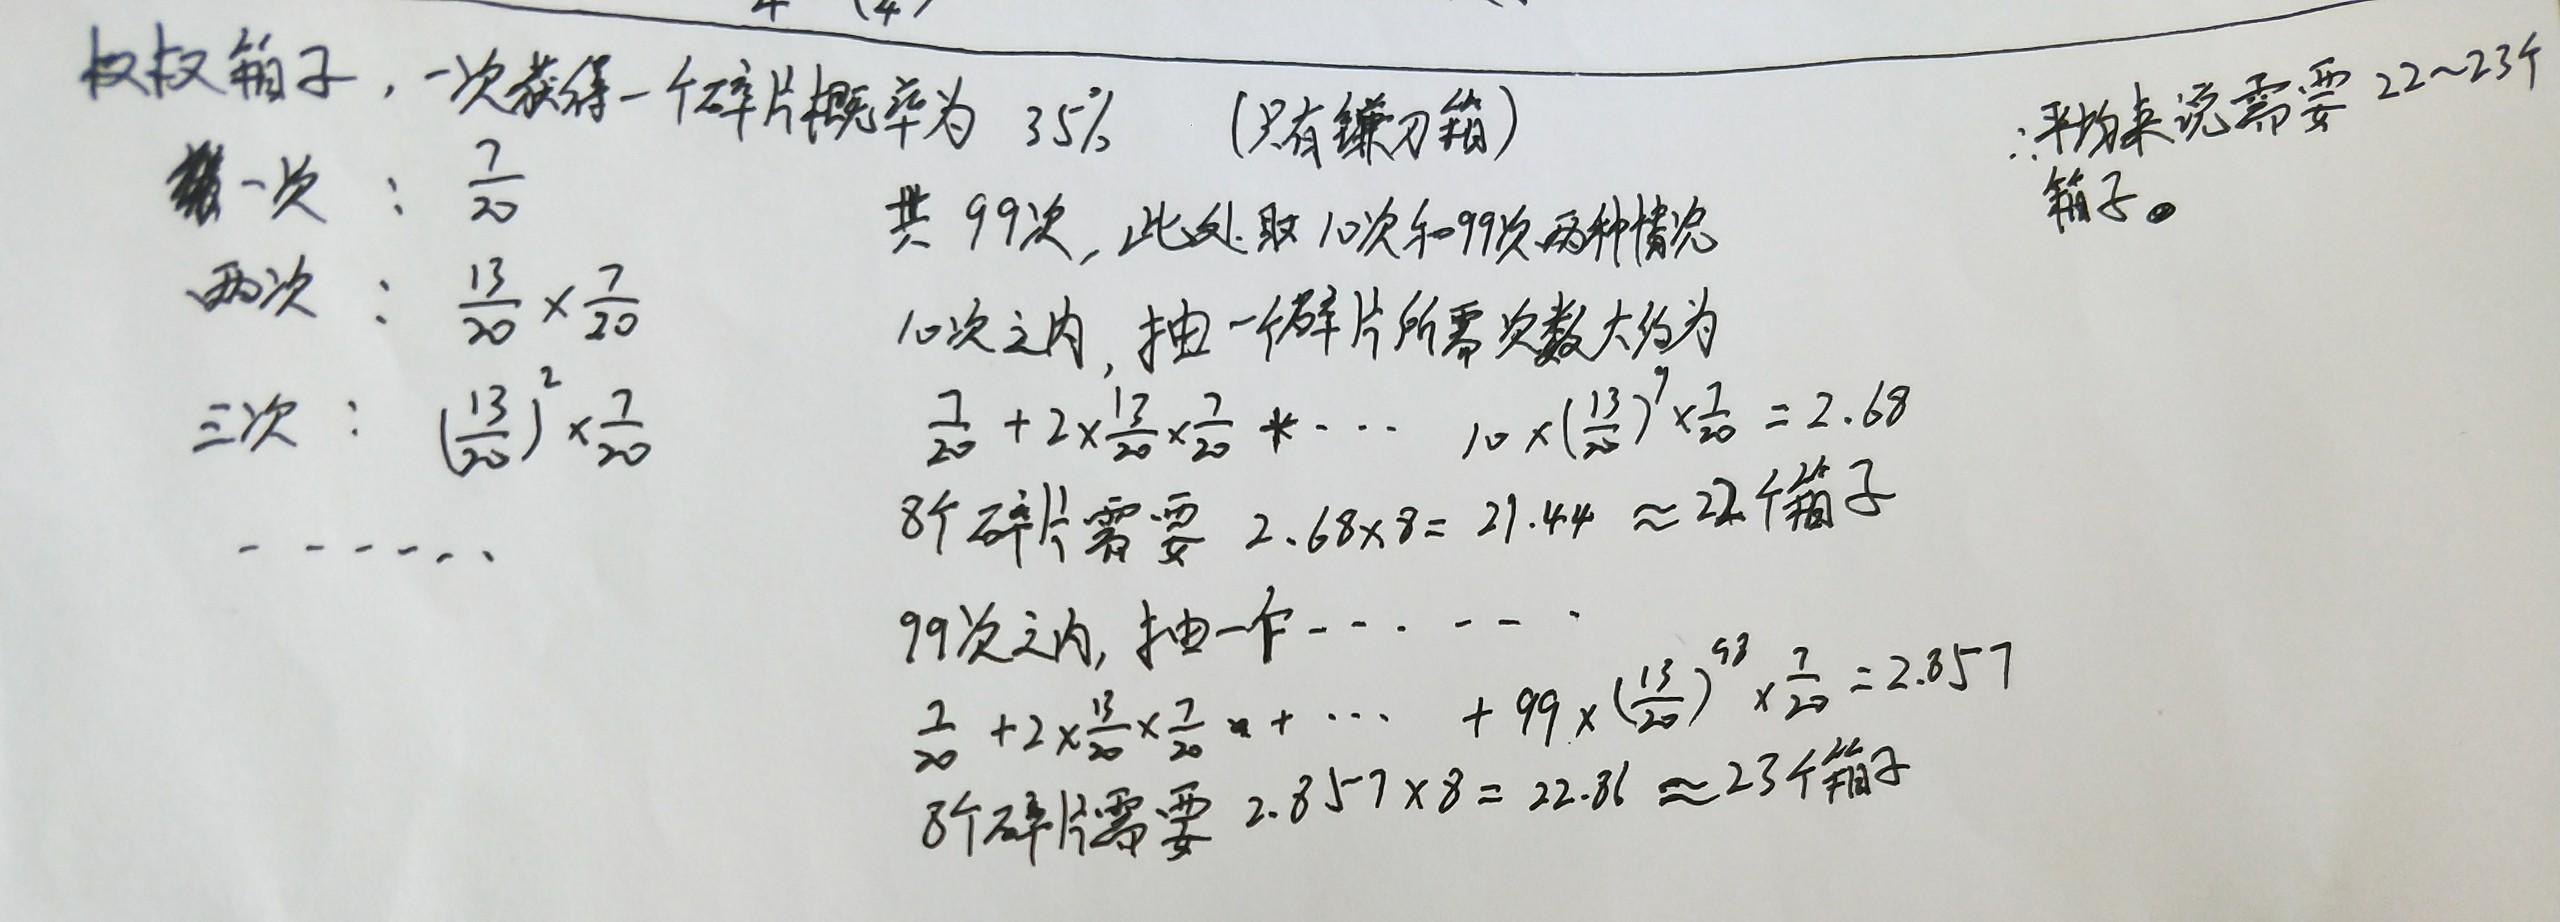 4 (4)
权权箱子，一次获得一个碎片概率为 35% (只有镰刀箱)
一次 : 7/20
两次 : 13/20 × 7/20
三次 : (13/20)² × 7/20
- - - - - -
共 99次, 此处取 10次和99次两种情况
10次之内, 抽一个碎片所需次数大约为
7/20 + 2×13/20×7/20 + ··· 10×(13/20)⁹×7/20 = 2.68
8个碎片需要 2.68×8= 21.44 ≈22个箱子
99次之内, 抽一个- - - · - - ·
7/20 +2×13/20×7/20 + ··· + 99×(13/20)⁹⁸×7/20 =2.857
8个碎片需要 2.857×8= 22.86 ≈23个箱子
∴平均来说需要 22~23个
箱子。